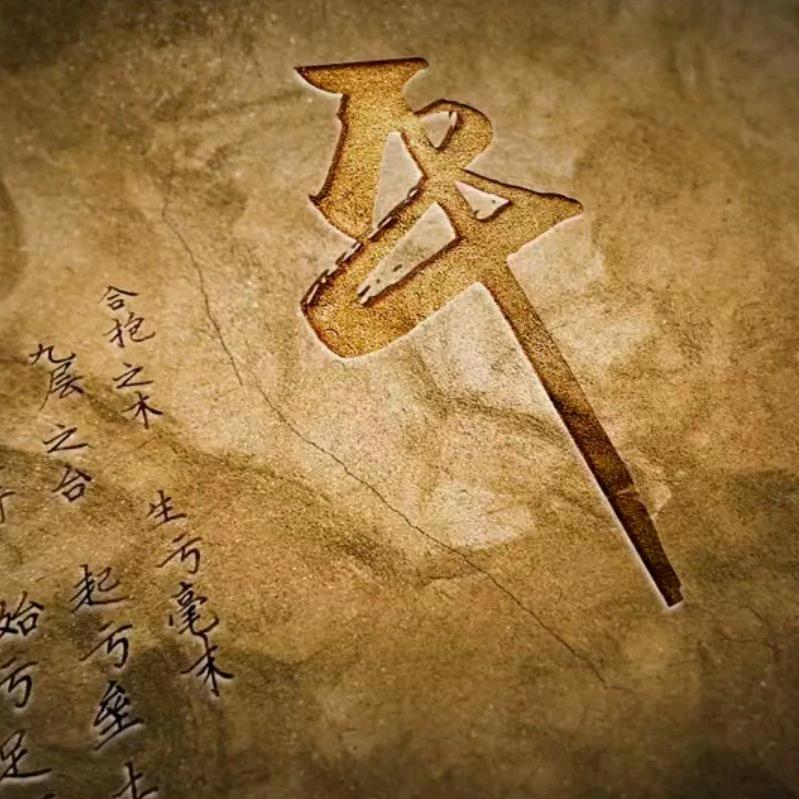 合抱之木 生亏毫末
九层之台 起亏垒土
行 始亏足